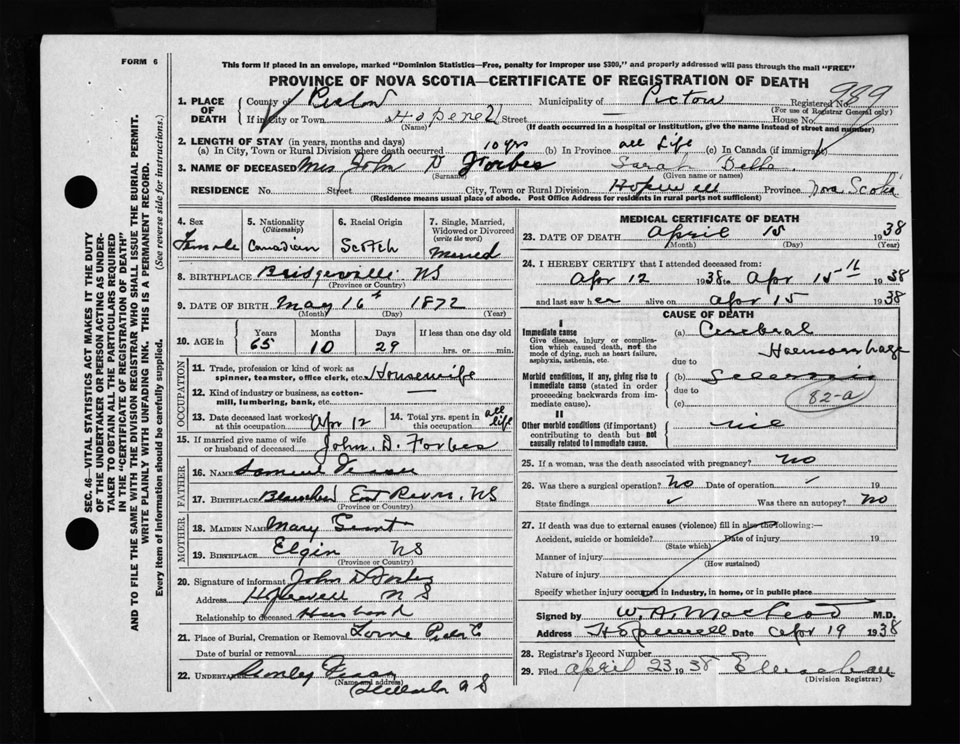 FORM 6
This form if placed in an envelope, marked "Dominion Statistics—Free, penalty for improper use $300," and properly addressed will pass through the mail "FREE"
PROVINCE OF NOVA SCOTIA—CERTIFICATE OF REGISTRATION OF DEATH
1. PLACE OF DEATH
County of Pictou Municipality of Pictou Registered No. 989
(For use of Registrar General only)
If in City or Town Hopewell Street House No.
(Name) (If death occurred in a hospital or institution, give the name instead of street and number)
2. LENGTH OF STAY (in years, months and days)
(a) In City, Town or Rural Division where death occurred 10 yrs (b) In Province all Life (c) In Canada (if immigrant)
3. NAME OF DECEASED Mrs John D Forbes Sarah Belle
(Surname) (Given name or names)
RESIDENCE No. Street City, Town or Rural Division Hopewell Province Nova Scotia
(Residence means usual place of abode. Post Office Address for residents in rural parts not sufficient)
4. Sex
Female
5. Nationality
(Citizenship)
Canadian
6. Racial Origin
Scotch
7. Single, Married, Widowed or Divorced
(write the word)
Married
8. BIRTHPLACE Bridgeville NS
(Province or Country)
9. DATE OF BIRTH May 16th 1872
(Month) (Day) (Year)
10. AGE in Years Months Days If less than one day old
65 10 29 hrs. or min.
OCCUPATION
11. Trade, profession or kind of work as spinner, teamster, office clerk, etc. Housewife
12. Kind of industry or business, as cotton-mill, lumbering, bank, etc.
13. Date deceased last worked at this occupation Apr 12
14. Total yrs. spent in this occupation all life
15. If married give name of wife or husband of deceased John. D. Forbes
FATHER
16. NAME Samuel
17. BIRTHPLACE East River, NS
(Province or Country)
MOTHER
18. MAIDEN NAME Mary Grant
19. BIRTHPLACE Elgin NS
(Province or Country)
20. Signature of informant John D Forbes
Address Hopewell N S
Relationship to deceased Husband
21. Place of Burial, Cremation or Removal Lorne
Date of burial or removal
22. UNDERTAKER
(Name and address)
N S
MEDICAL CERTIFICATE OF DEATH
23. DATE OF DEATH April 15 1938
(Month) (Day) (Year)
24. I HEREBY CERTIFY that I attended deceased from:
Apr 12 1938 to Apr 15 1938
and last saw her alive on Apr 15 1938
CAUSE OF DEATH
I
Immediate cause
Give disease, injury or complication which caused death, not the mode of dying, such as heart failure, asphyxia, asthenia, etc.
(a) Cerebral Haemorrhage
due to
Morbid conditions, if any, giving rise to immediate cause (stated in order proceeding backwards from immediate cause).
(b) Sclerosis
due to
(c) 82-a
II
Other morbid conditions (if important) contributing to death but not causally related to immediate cause.
25. If a woman, was the death associated with pregnancy? No
26. Was there a surgical operation? No Date of operation
State findings Was there an autopsy? No
27. If death was due to external causes (violence) fill in also the following:—
Accident, suicide or homicide? Date of injury 19
(State which)
Manner of injury
(How sustained)
Nature of injury
Specify whether injury occurred in industry, in home, or in public place
Signed by W. A. MacLeod M.D.
Address Hopewell Date Apr 19 1938
28. Registrar's Record Number
29. Filed April 23 1938
(Division Registrar)
SEC. 46—VITAL STATISTICS ACT MAKES IT THE DUTY
OF THE UNDERTAKER OR PERSON ACTING AS UNDER-
TAKER TO OBTAIN ALL THE PARTICULARS REQUIRED
IN THE "CERTIFICATE OF REGISTRATION OF DEATH"
AND TO FILE THE SAME WITH THE DIVISION REGISTRAR WHO SHALL ISSUE THE BURIAL PERMIT.
WRITE PLAINLY WITH UNFADING INK. THIS IS A PERMANENT RECORD.
Every item of information should be carefully supplied. (See reverse side for instructions.)